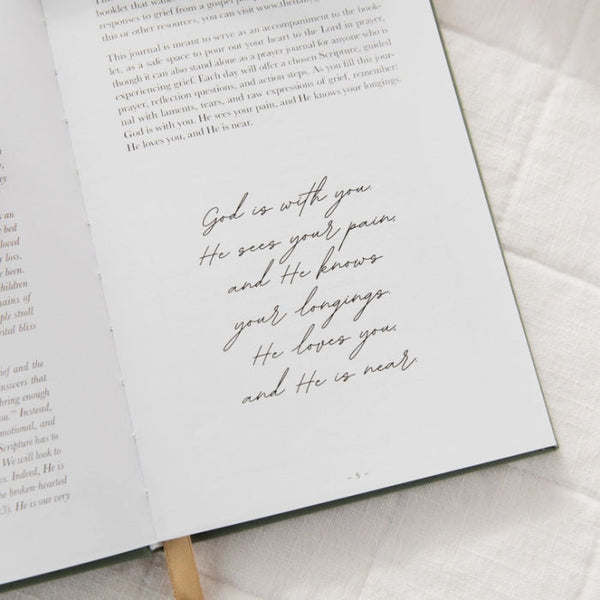 s an
e bed
loved
y loss.
e been.
children
mains of
ple stroll
rital bliss
rief and the
answers that
bring enough
ou." Instead,
motional, and
Scripture has to
We will look to
es. Indeed, He is
he broken-hearted
:3). He is our very
booklet that
responses to grief from a gospel
this or other resources, you can visit www.thedaily
This journal is meant to serve as an accompaniment to the book-
let, as a safe space to pour out your heart to the Lord in prayer,
though it can also stand alone as a prayer journal for anyone who is
experiencing grief. Each day will offer a chosen Scripture, guided
prayer, reflection questions, and action steps. As you fill this jour-
nal with laments, tears, and raw expressions of grief, remember:
God is with you. He sees your pain, and He knows your longings.
He loves you, and He is near.
God is with you.
He sees your pain,
and He knows
your longings.
He loves you,
and He is near.
– 5 –